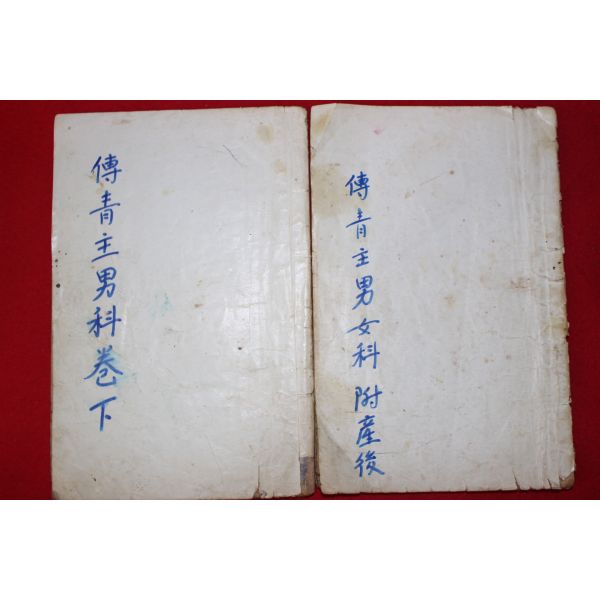 傅青主男科卷下
傅青主男女科 附産後